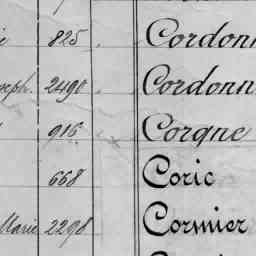 825 Cordon
seph. 2490 Cordonn
916 Corgne
668 Coric
Marie 2298 Cormier